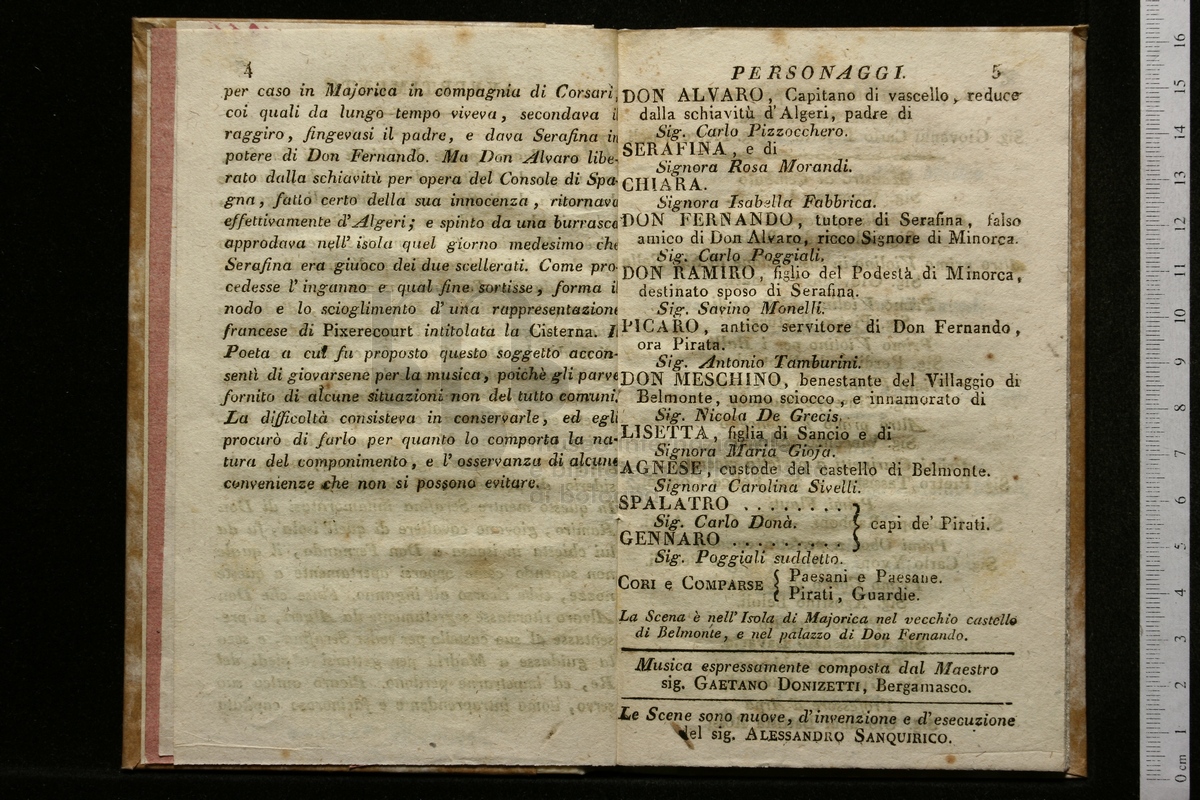 4
per caso in Majorica in compagnia di Corsari,
coi quali da lungo tempo viveva, secondava il
raggiro, fingevasi il padre, e dava Serafina in
potere di Don Fernando. Ma Don Alvaro libe-
rato dalla schiavitù per opera del Console di Spa-
gna, fatto certo della sua innocenza, ritornava
effettivamente d'Algeri; e spinto da una burrasca
approdava nell' isola quel giorno medesimo che
Serafina era giuoco dei due scellerati. Come pro-
cedesse l' inganno e qual fine sortisse, forma il
nodo e lo scioglimento d' una rappresentazione
francese di Pixerecourt intitolata la Cisterna. Il
Poeta a cui fu proposto questo soggetto accon-
sentì di giovarsene per la musica, poichè gli parve
fornito di alcune situazioni non del tutto comuni.
La difficoltà consisteva in conservarle, ed egli
procurò di farlo per quanto lo comporta la na-
tura del componimento, e l' osservanza di alcune
convenienze che non si possono evitare.
PERSONAGGI. 5
DON ALVARO, Capitano di vascello, reduce
dalla schiavitù d'Algeri, padre di
Sig. Carlo Pizzocchero.
SERAFINA, e di
Signora Rosa Morandi.
CHIARA.
Signora Isabella Fabbrica.
DON FERNANDO, tutore di Serafina, falso
amico di Don Alvaro, ricco Signore di Minorca.
Sig. Carlo Poggiali.
DON RAMIRO, figlio del Podestà di Minorca,
destinato sposo di Serafina.
Sig. Savino Monelli.
PICARO, antico servitore di Don Fernando,
ora Pirata.
Sig. Antonio Tamburini.
DON MESCHINO, benestante del Villaggio di
Belmonte, uomo sciocco, e innamorato di
Sig. Nicola De Grecis.
LISETTA, figlia di Sancio e di
Signora Maria Gioja.
AGNESE, custode del castello di Belmonte.
Signora Carolina Sivelli.
SPALATRO ........
Sig. Carlo Donà. } capi de' Pirati.
GENNARO .........
Sig. Poggiali suddetto.
CORI e COMPARSE { Paesani e Paesane.
Pirati, Guardie.
La Scena è nell' Isola di Majorica nel vecchio castello
di Belmonte, e nel palazzo di Don Fernando.
Musica espressamente composta dal Maestro
sig. GAETANO DONIZETTI, Bergamasco.
Le Scene sono nuove, d'invenzione e d'esecuzione
del sig. ALESSANDRO SANQUIRICO.
0 cm 1 2 3 4 5 6 7 8 9 10 11 12 13 14 15 16